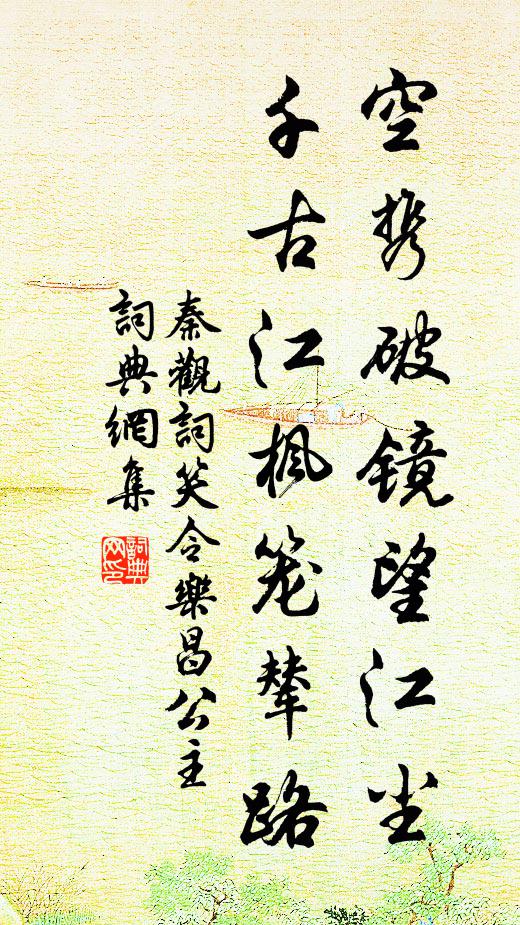 空携破镜望江尘
千古江枫笼辇路
秦觀詞笑令樂昌公主
詞典網集
詞典
网印